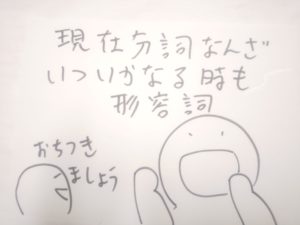 現在分詞なんざ
いついかなる時も
形容詞
おちつき
ましょう